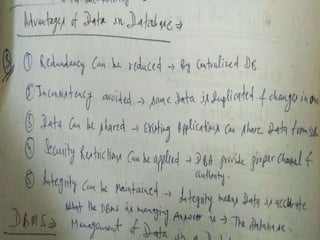 Advantages of Data in Database ⇒
① Redundancy Can be reduced → By Centralized DB.
② Inconsistency avoided → same Data is Duplicated & changes in one
③ Data Can be shared → Existing Applications Can share Data from DB
④ Security Restrictions Can be applied → DBA provide proper Channel &
authority.
⑤ Integrity Can be Maintained → Integrity means Data is accurate
what the DBMS is managing Answer is → The Database.
DBMS ⇒ Management of Data in a